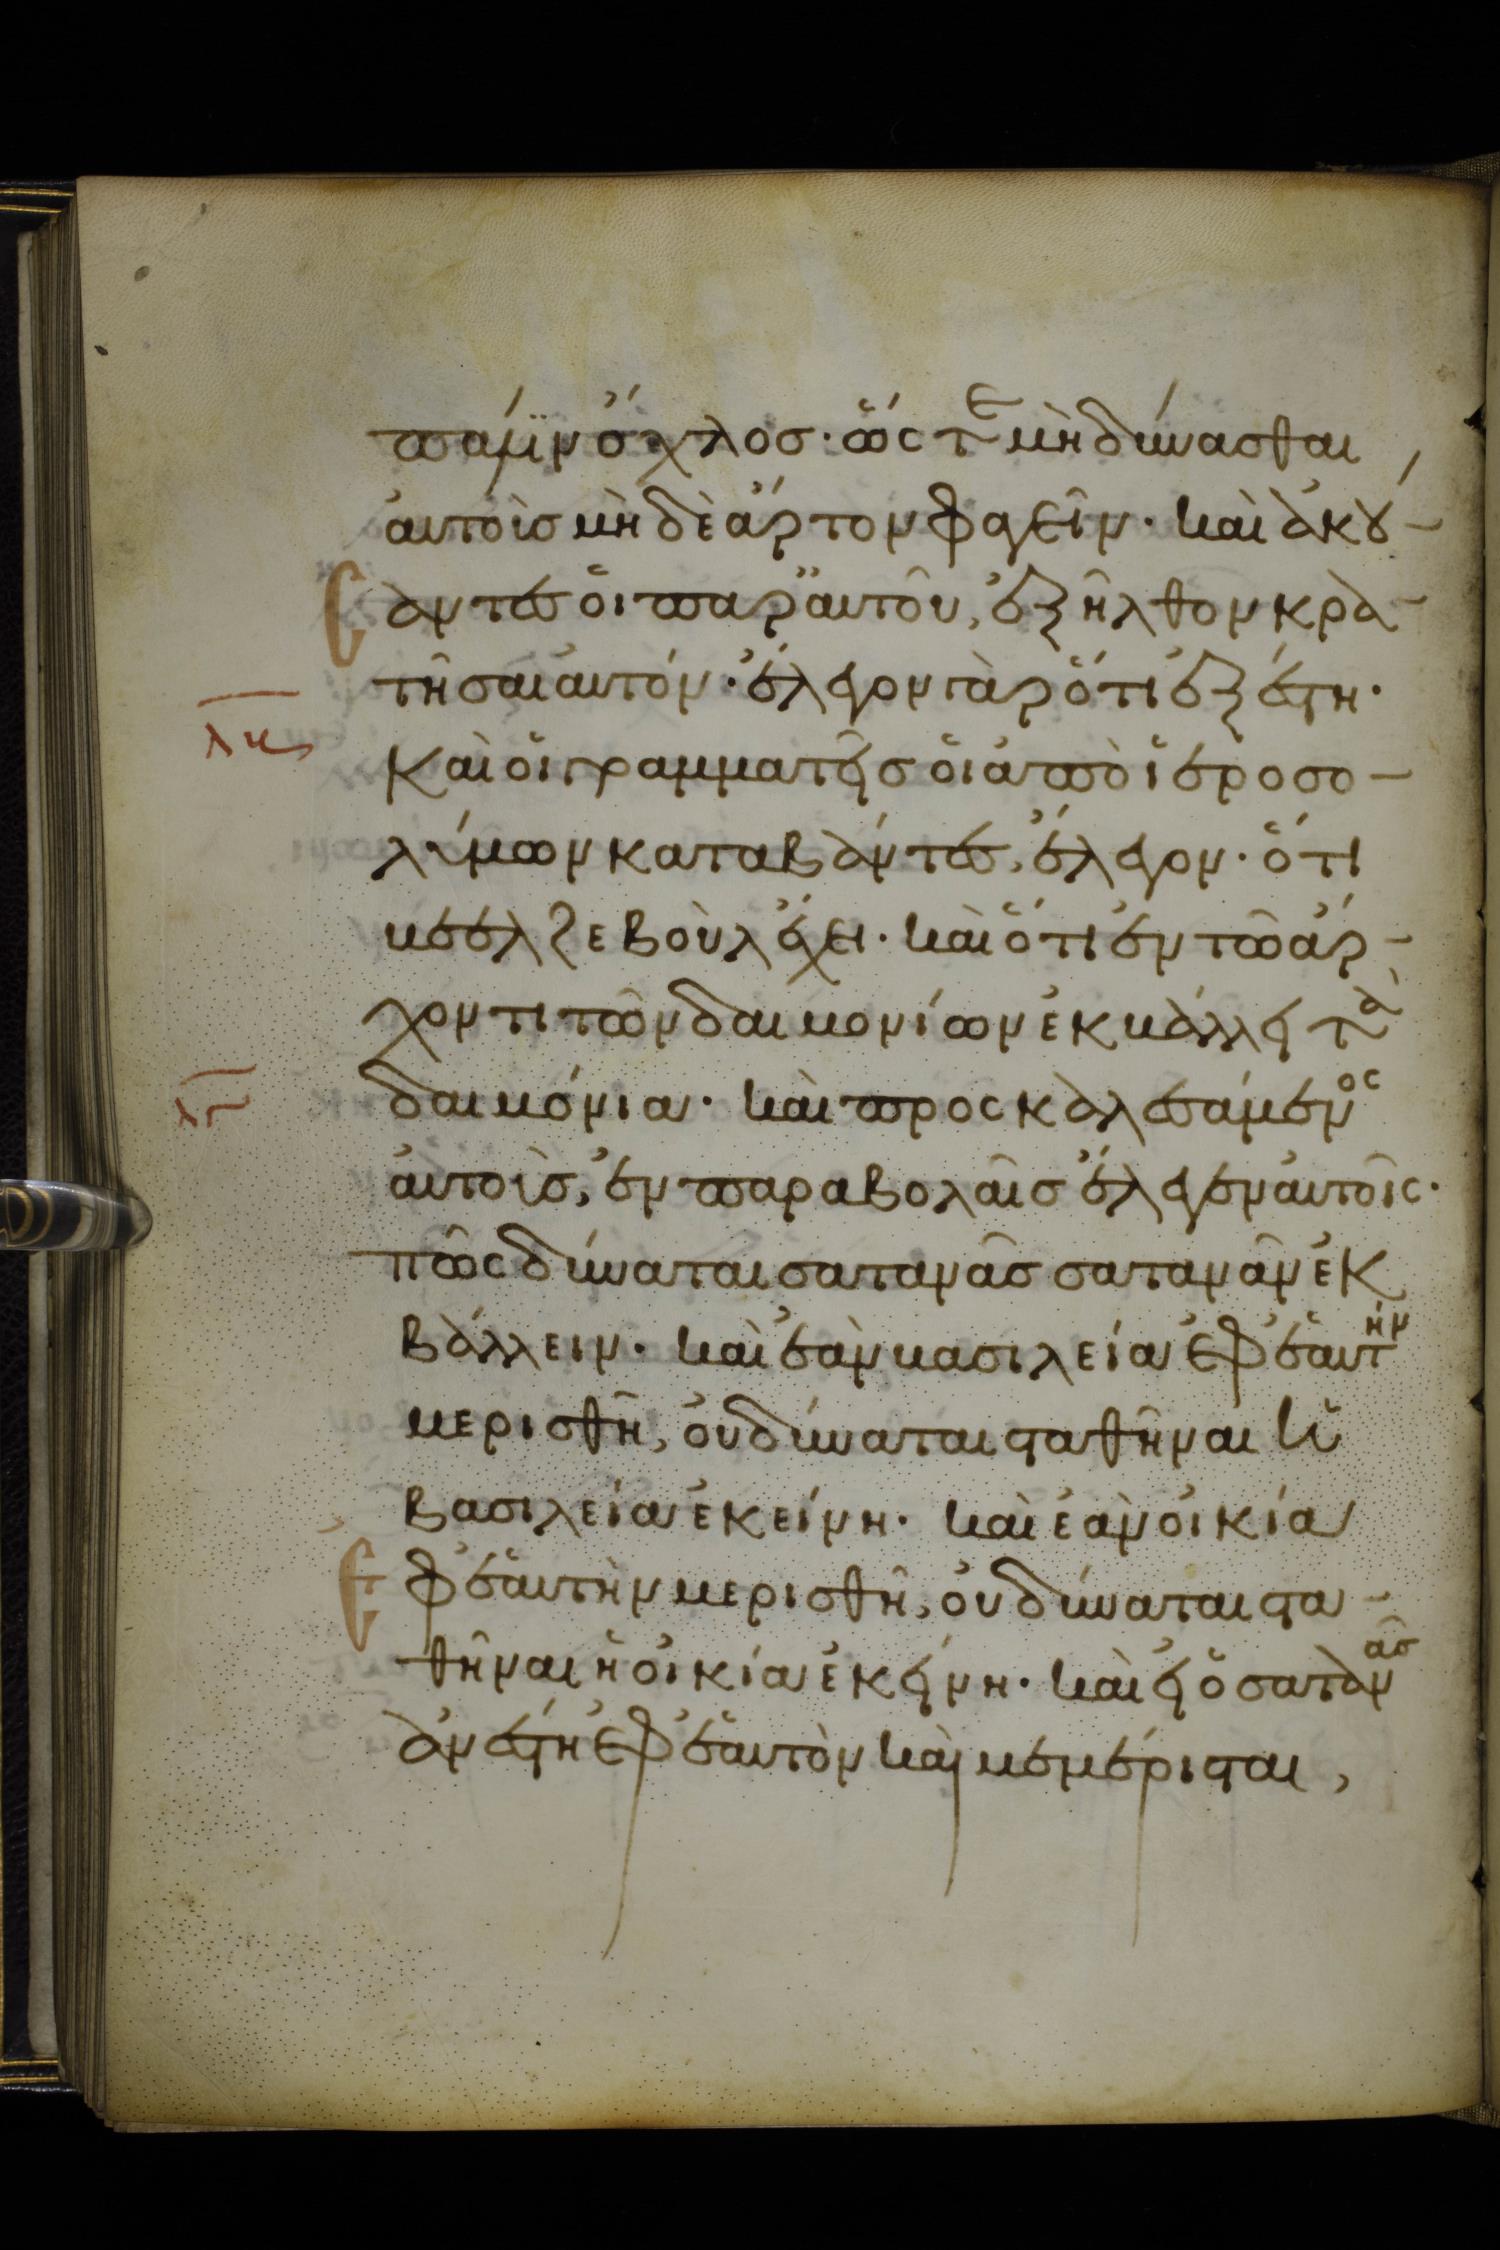 πάλϊν ὄχλοσ· ὥς τε μὴ δύνασθαι
ἀυτοὶσ μὴ δὲ ἄρτον φαγεῖν· καὶ ἀκού
ἀντεσ ὁι παρ ἀυτοῦ, ἐξῆλθον κρα
τῆσαι ἀυτόν· ἔλεγον γὰρ ὅτι ἐξέστη·
λη
Καὶ ὁι γραμματεῖσ ὁι ἀπὸ ἱεροσο
λύμων καταβάντεσ, ἔλεγον· ὅτι
βεελζεβοὺλ ἔχει· καὶ ὅτι ἐν τῶ ἄρ
χοντι τῶν δαιμονίων ἐκβάλλει τὰ
λθ
δαιμόνια· καὶ προσκαλεσάμενος
ἀυτοὶσ, ἐν παραβολαῖσ ἔλεγεν ἀυτοῖς·
πῶς δύναται σατανᾶσ σατανᾶν ἐκ
βάλλειν· καὶ ἐὰν βασιλεία ἐφ ἑαυτήν
μερισθῆ, ὀυ δύναται σταθῆναι ἡ
βασιλεία ἐκείνη· καὶ ἐὰν ὀικία
Ἐ
φ ἑαυτὴν μερισθῆ, ὀυ δύναται στα
θῆναι ἡ ὀικία ἐκείνη· καὶ εἰ ὁ σατανᾶσ
ἀνέστη ἐφ ἑαυτὸν καὶ μεμέρισται,